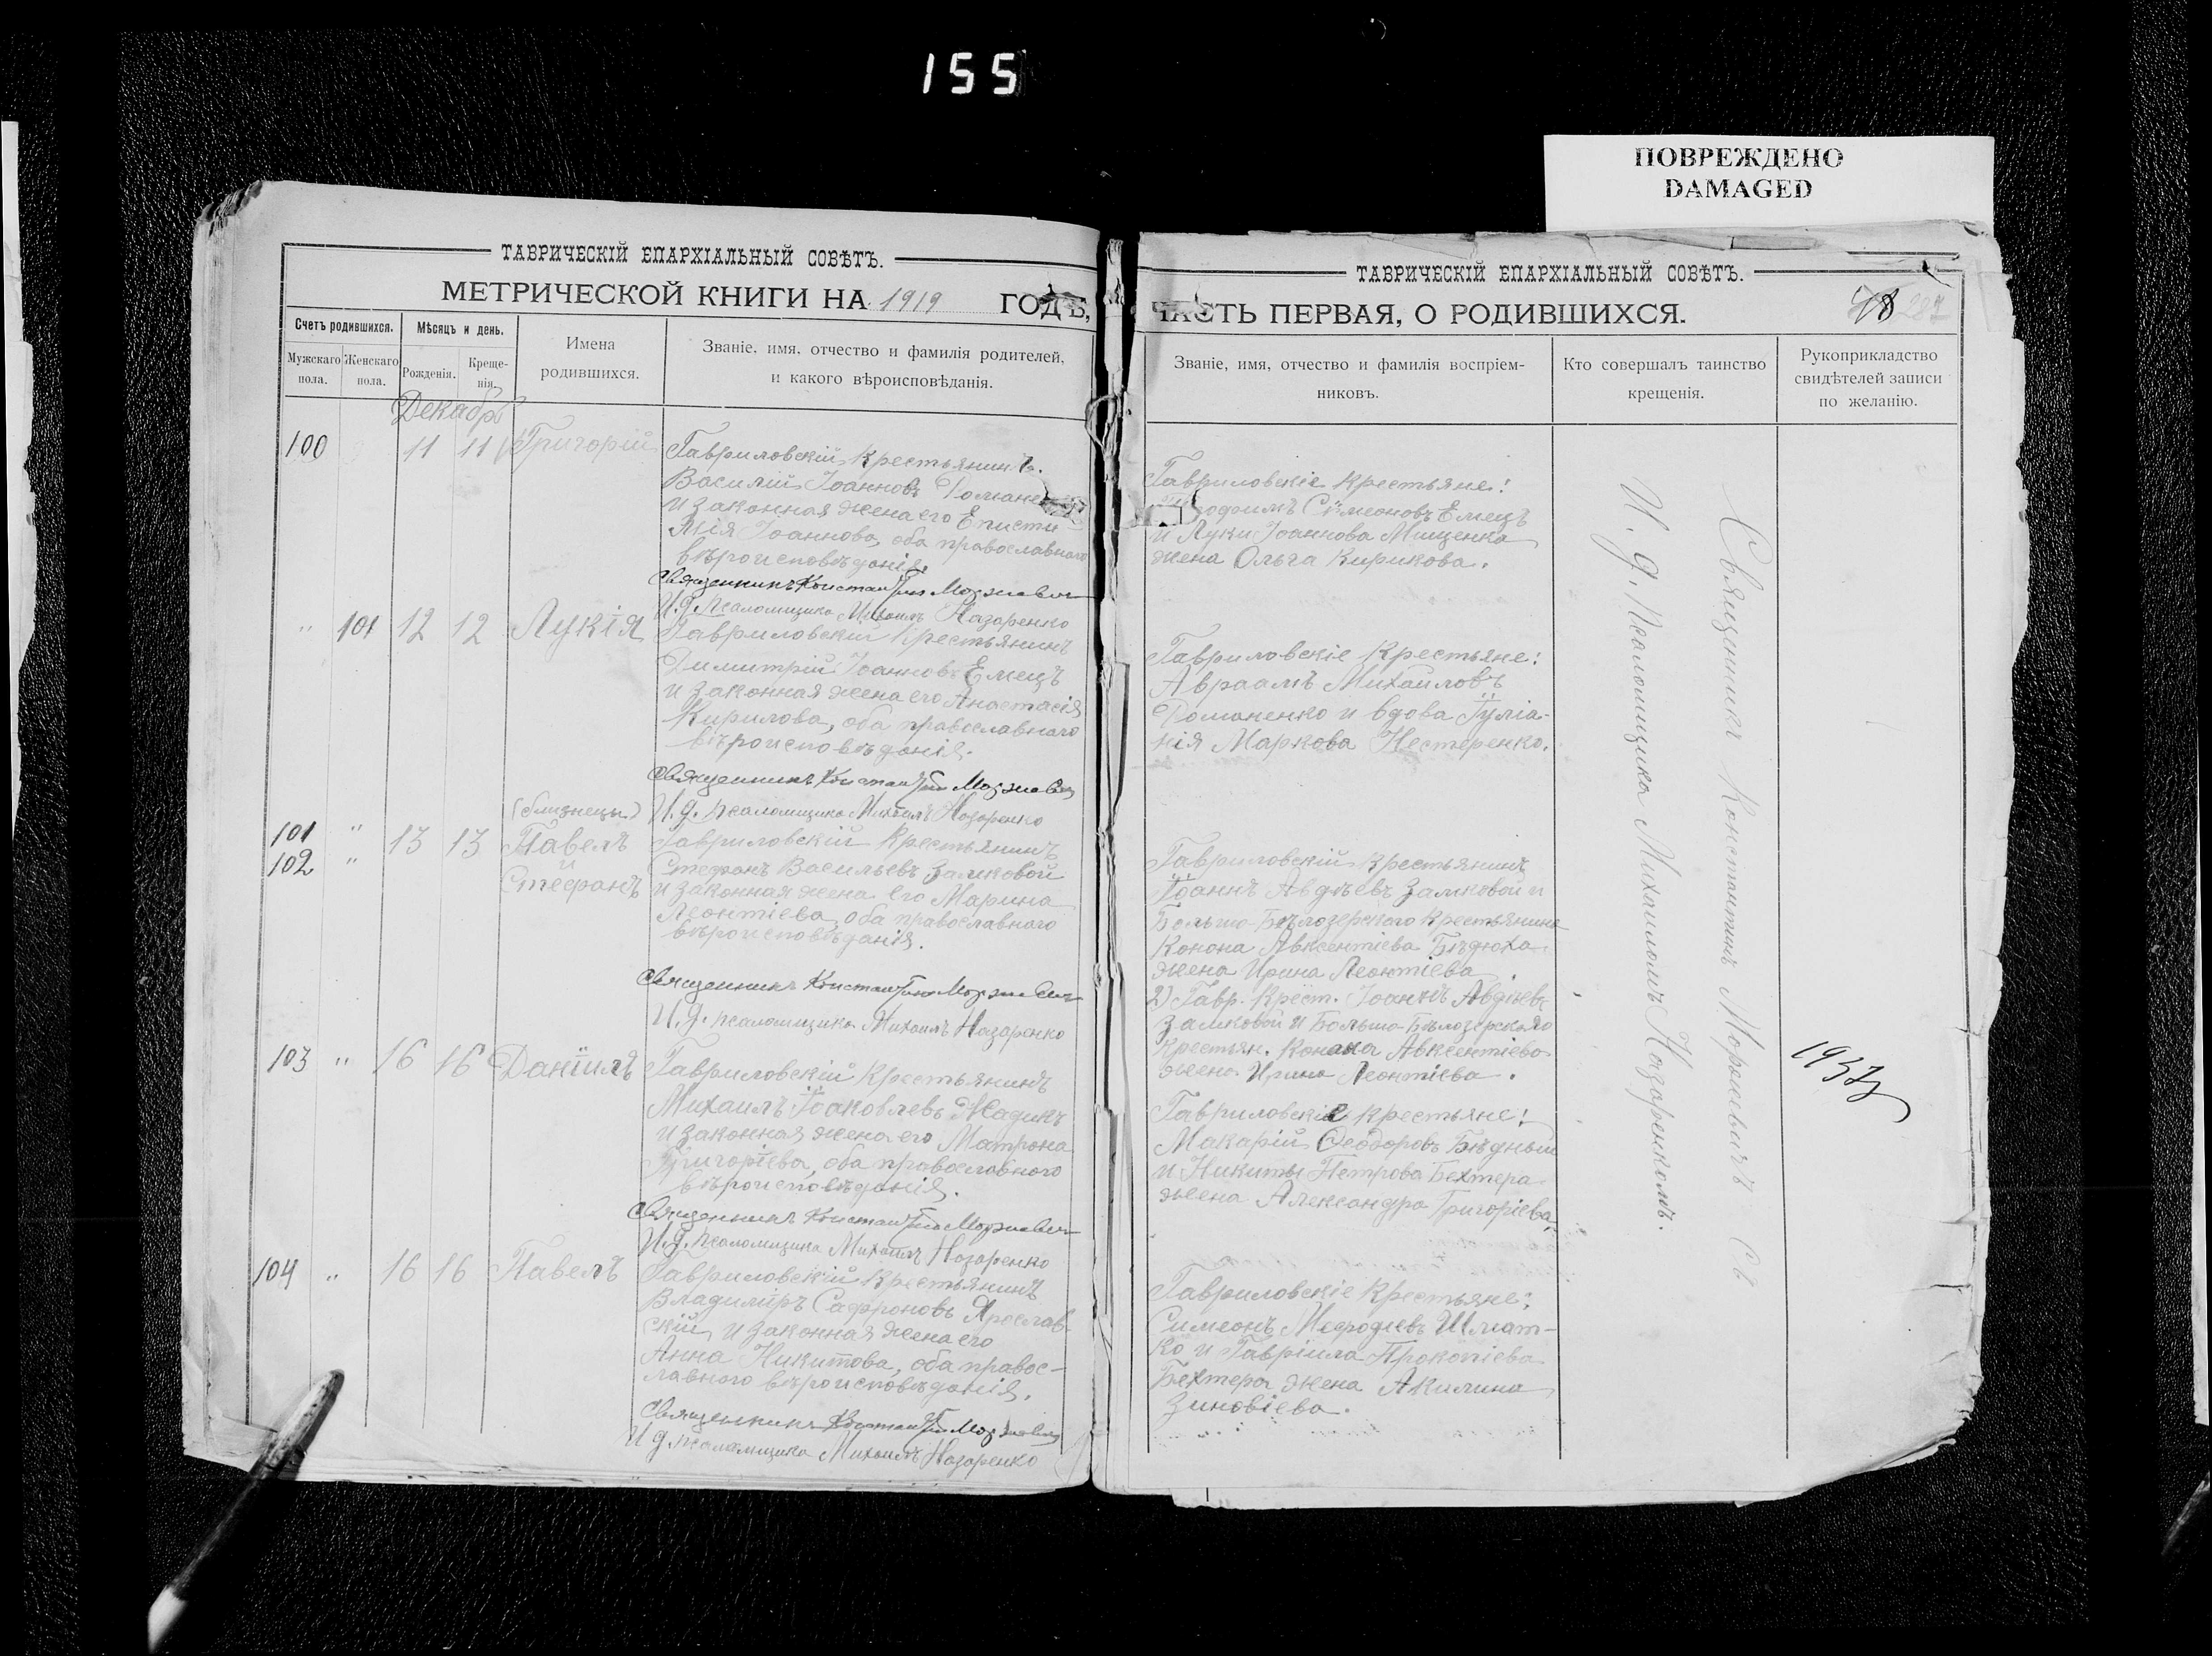 155
ПОВРЕЖДЕНО
DAMAGED
ТАВРИЧЕСКІЙ ЕПАРХІАЛЬНЫЙ СОВѢТЪ.
МЕТРИЧЕСКОЙ КНИГИ НА 1919 ГОДЪ,
Счетъ родившихся.
Мужскаго пола.
Женскаго пола.
Мѣсяцъ и день.
Рожденія.
Креще-
нія.
Имена
родившихся.
Званіе, имя, отчество и фамилія родителей,
и какого вѣроисповѣданія.
Декабрь
100 11 11 Григорій
Гавриловскій крестьянинъ
Василій Іоанновъ
и законная жена его Еписти-
мія Іоаннова, оба православнаго
вѣроисповѣданія.
Священникъ Константинъ
И.д. псаломщика Михаилъ Назаренко
" 101 12 12 Лукія
Гавриловскій крестьянинъ
Димитрій Іоанновъ Емецъ
и законная жена его Анастасія
Кирилова, оба православнаго
вѣроисповѣданія.
Священникъ Константинъ
И.д. псаломщика Михаилъ Назаренко
(близнецы)
101 " 13 13 Павелъ
102 " и
Стефанъ
Гавриловскій крестьянинъ
Стефанъ Васильевъ Замковой
и законная жена его Марина
Леонтіева, оба православнаго
вѣроисповѣданія.
Священникъ Константинъ
И.д. псаломщика Михаилъ Назаренко
103 " 16 16 Даніилъ
Гавриловскій крестьянинъ
Михаилъ Іаковлевъ
и законная жена его Матрона
Григоріева, оба православнаго
вѣроисповѣданія.
Священникъ Константинъ
И.д. псаломщика Михаилъ Назаренко
104 " 16 16 Павелъ
Гавриловскій крестьянинъ
Владиміръ Сафроновъ Ярослав-
скій и законная жена его
Анна Никитова, оба правос-
лавнаго вѣроисповѣданія.
Священникъ Константинъ
И д. псаломщика Михаилъ Назаренко
ТАВРИЧЕСКІЙ ЕПАРХІАЛЬНЫЙ СОВѢТЪ.
ЧАСТЬ ПЕРВАЯ, О РОДИВШИХСЯ.
287
Званіе, имя, отчество и фамилія воспріем-
никовъ.
Кто совершалъ таинство
крещенія.
Рукоприкладство
свидѣтелей записи
по желанію.
Гавриловскіе крестьяне:
Симеоновъ Емецъ
и Луки Іоаннова Мищенка
жена Ольга Кирикова.
Гавриловскіе крестьяне:
Авраамъ Михаиловъ
Романенко и вдова Іуліа-
нія Маркова Нестеренко.
Гавриловскій крестьянинъ
Іоаннъ Авдѣевъ Замковой и
Больше-Бѣлозерскаго крестьянина
Конона Авксентіева
жена Ирина Леонтіева.
2) Гавр. крест. Іоаннъ Авдѣевъ
Замковой и Больше-Бѣлозерскаго
крестьян. Конона Авксентіева
жена Ирина Леонтіева.
Гавриловскіе крестьяне:
Макарій Ѳеодоровъ Бѣдный
и Никиты Петрова Бехтера
жена Александра Григоріева.
Гавриловскіе крестьяне:
Симеонъ Меѳодіевъ Шмат-
ко и Гавріила Прокопіева
Бехтера жена Акилина
Зиновіева.
Священникъ Константинъ съ
И. д. псаломщика Михаиломъ Назаренкомъ.